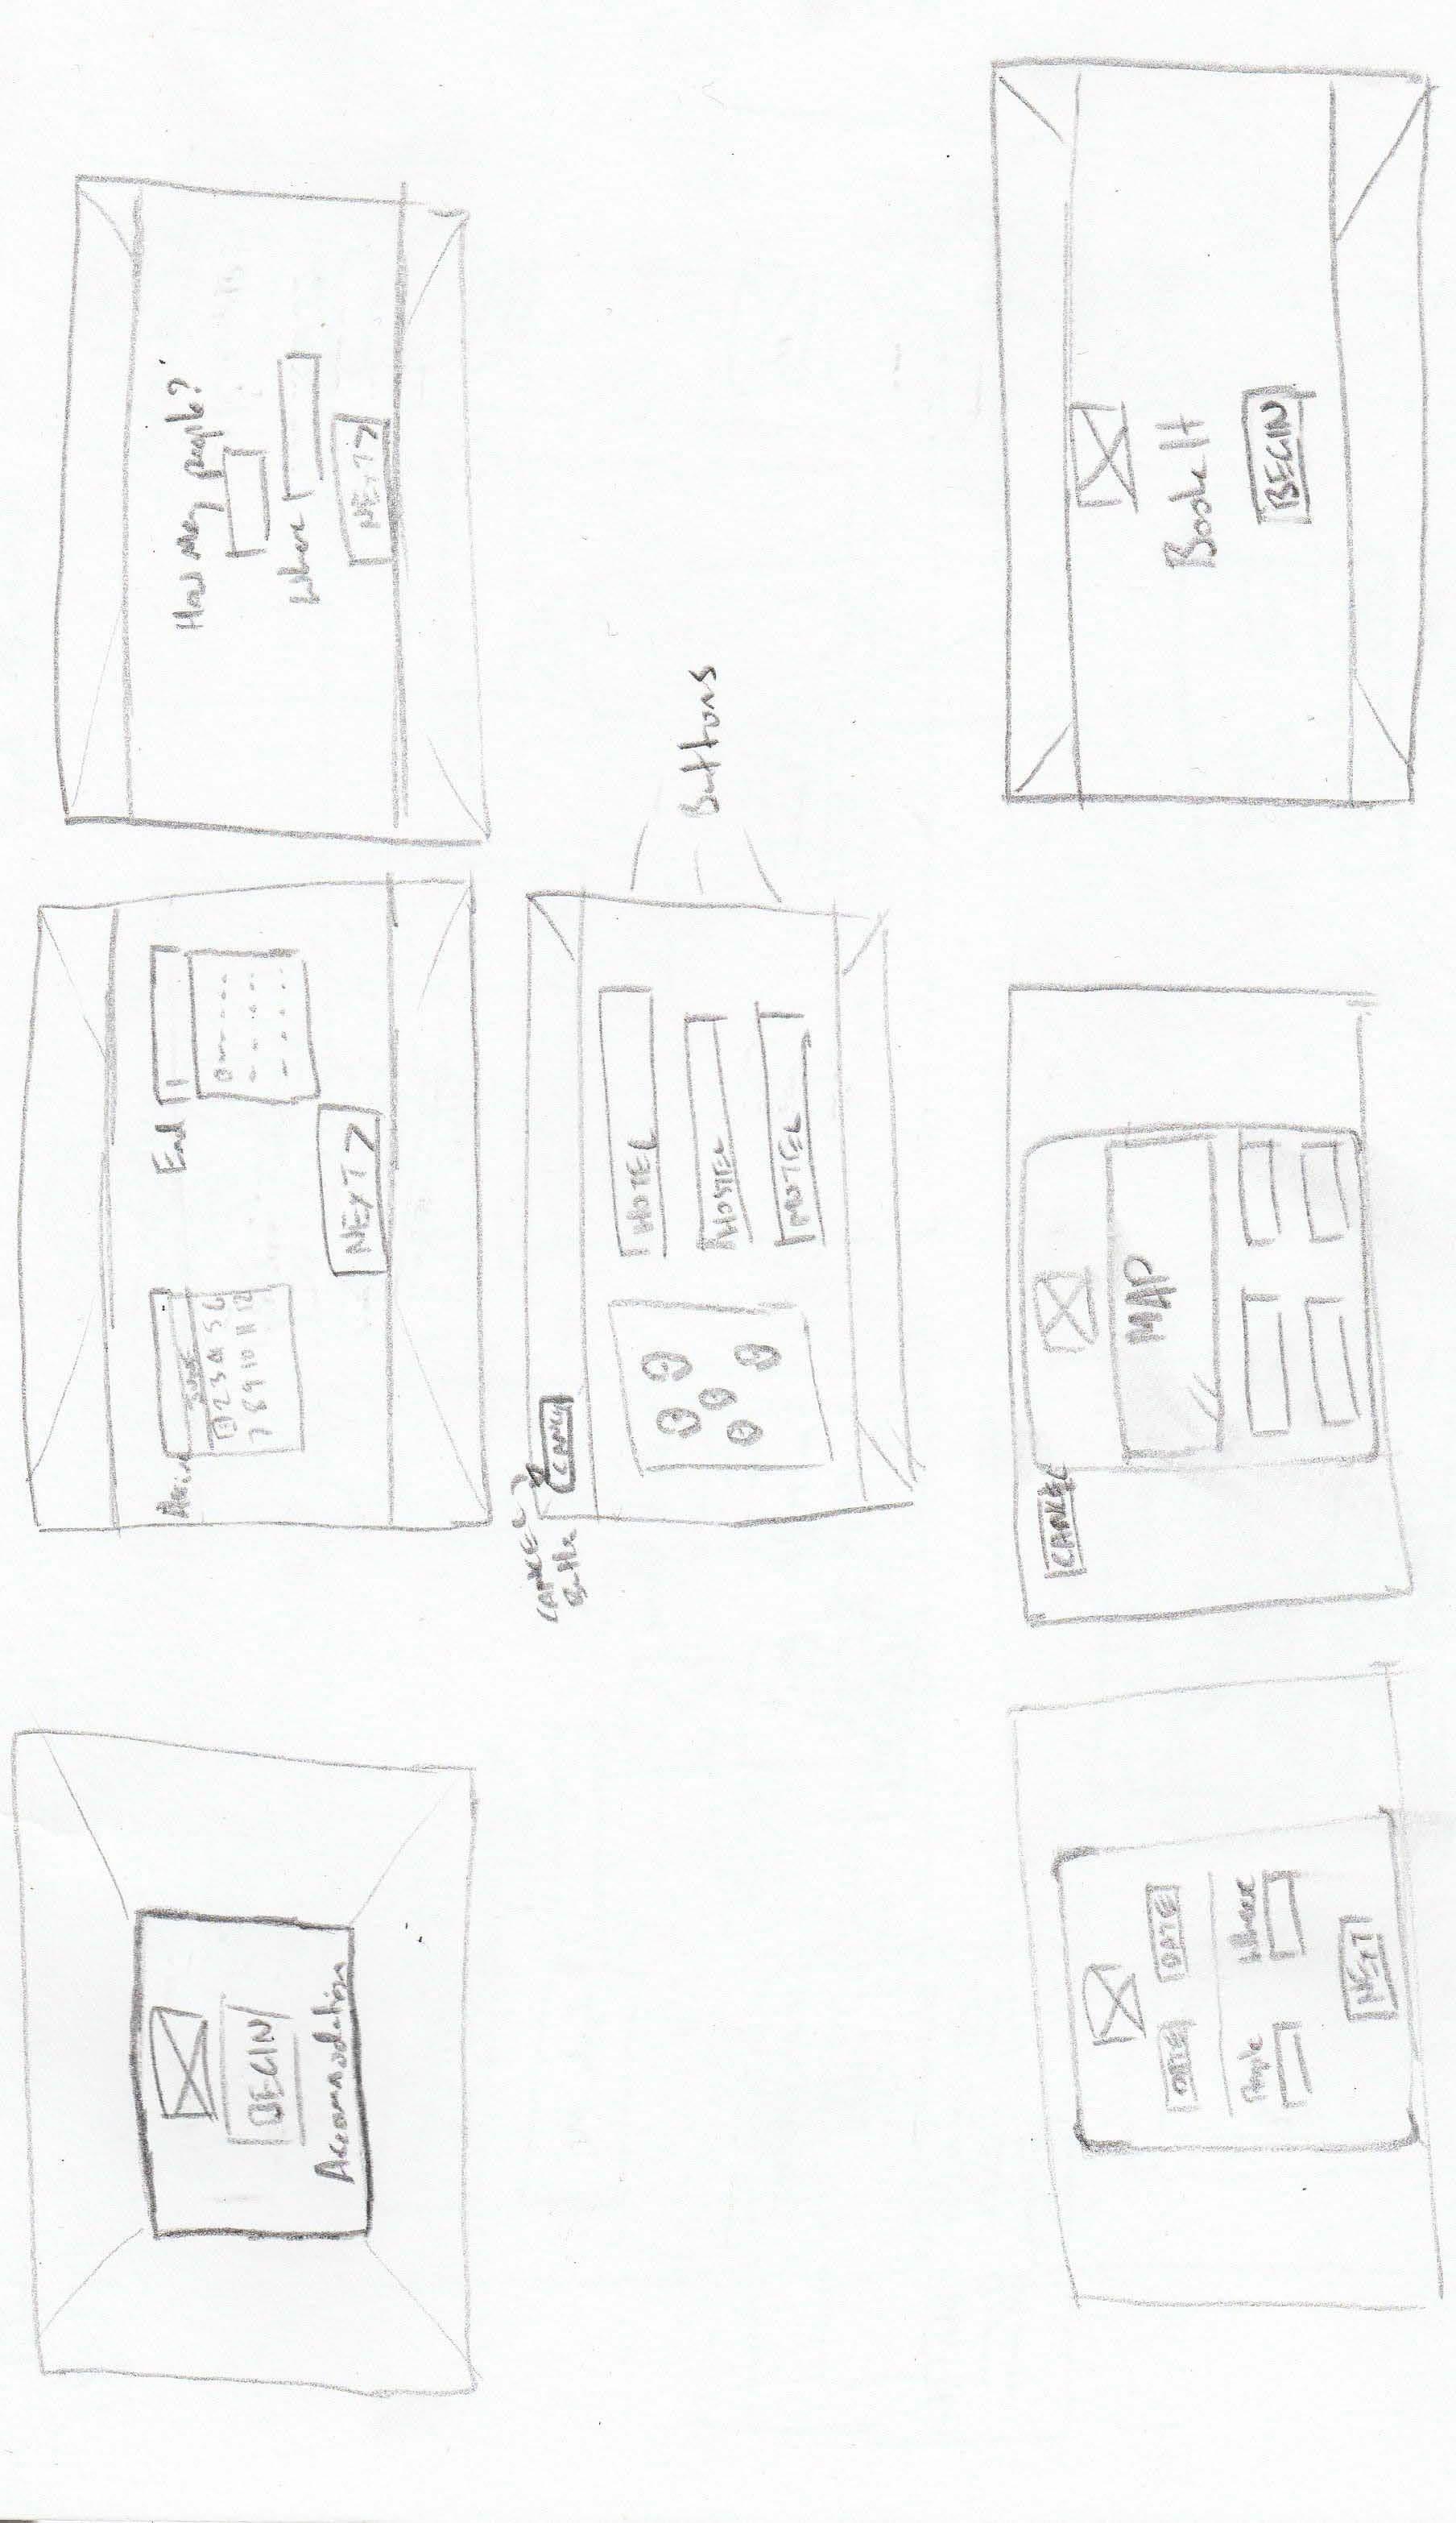 BEGIN
Accommodation
End
1 2 3 4 5 6
7 8 9 10 11 12
NEXT >
How Many people?
Where
NEXT >
CANCEL
CANCEL
HOTEL
HOSTEL
MOTEL
Buttons
DATE DATE
People Where
NEXT
CANCEL
MAP
Book It
BEGIN